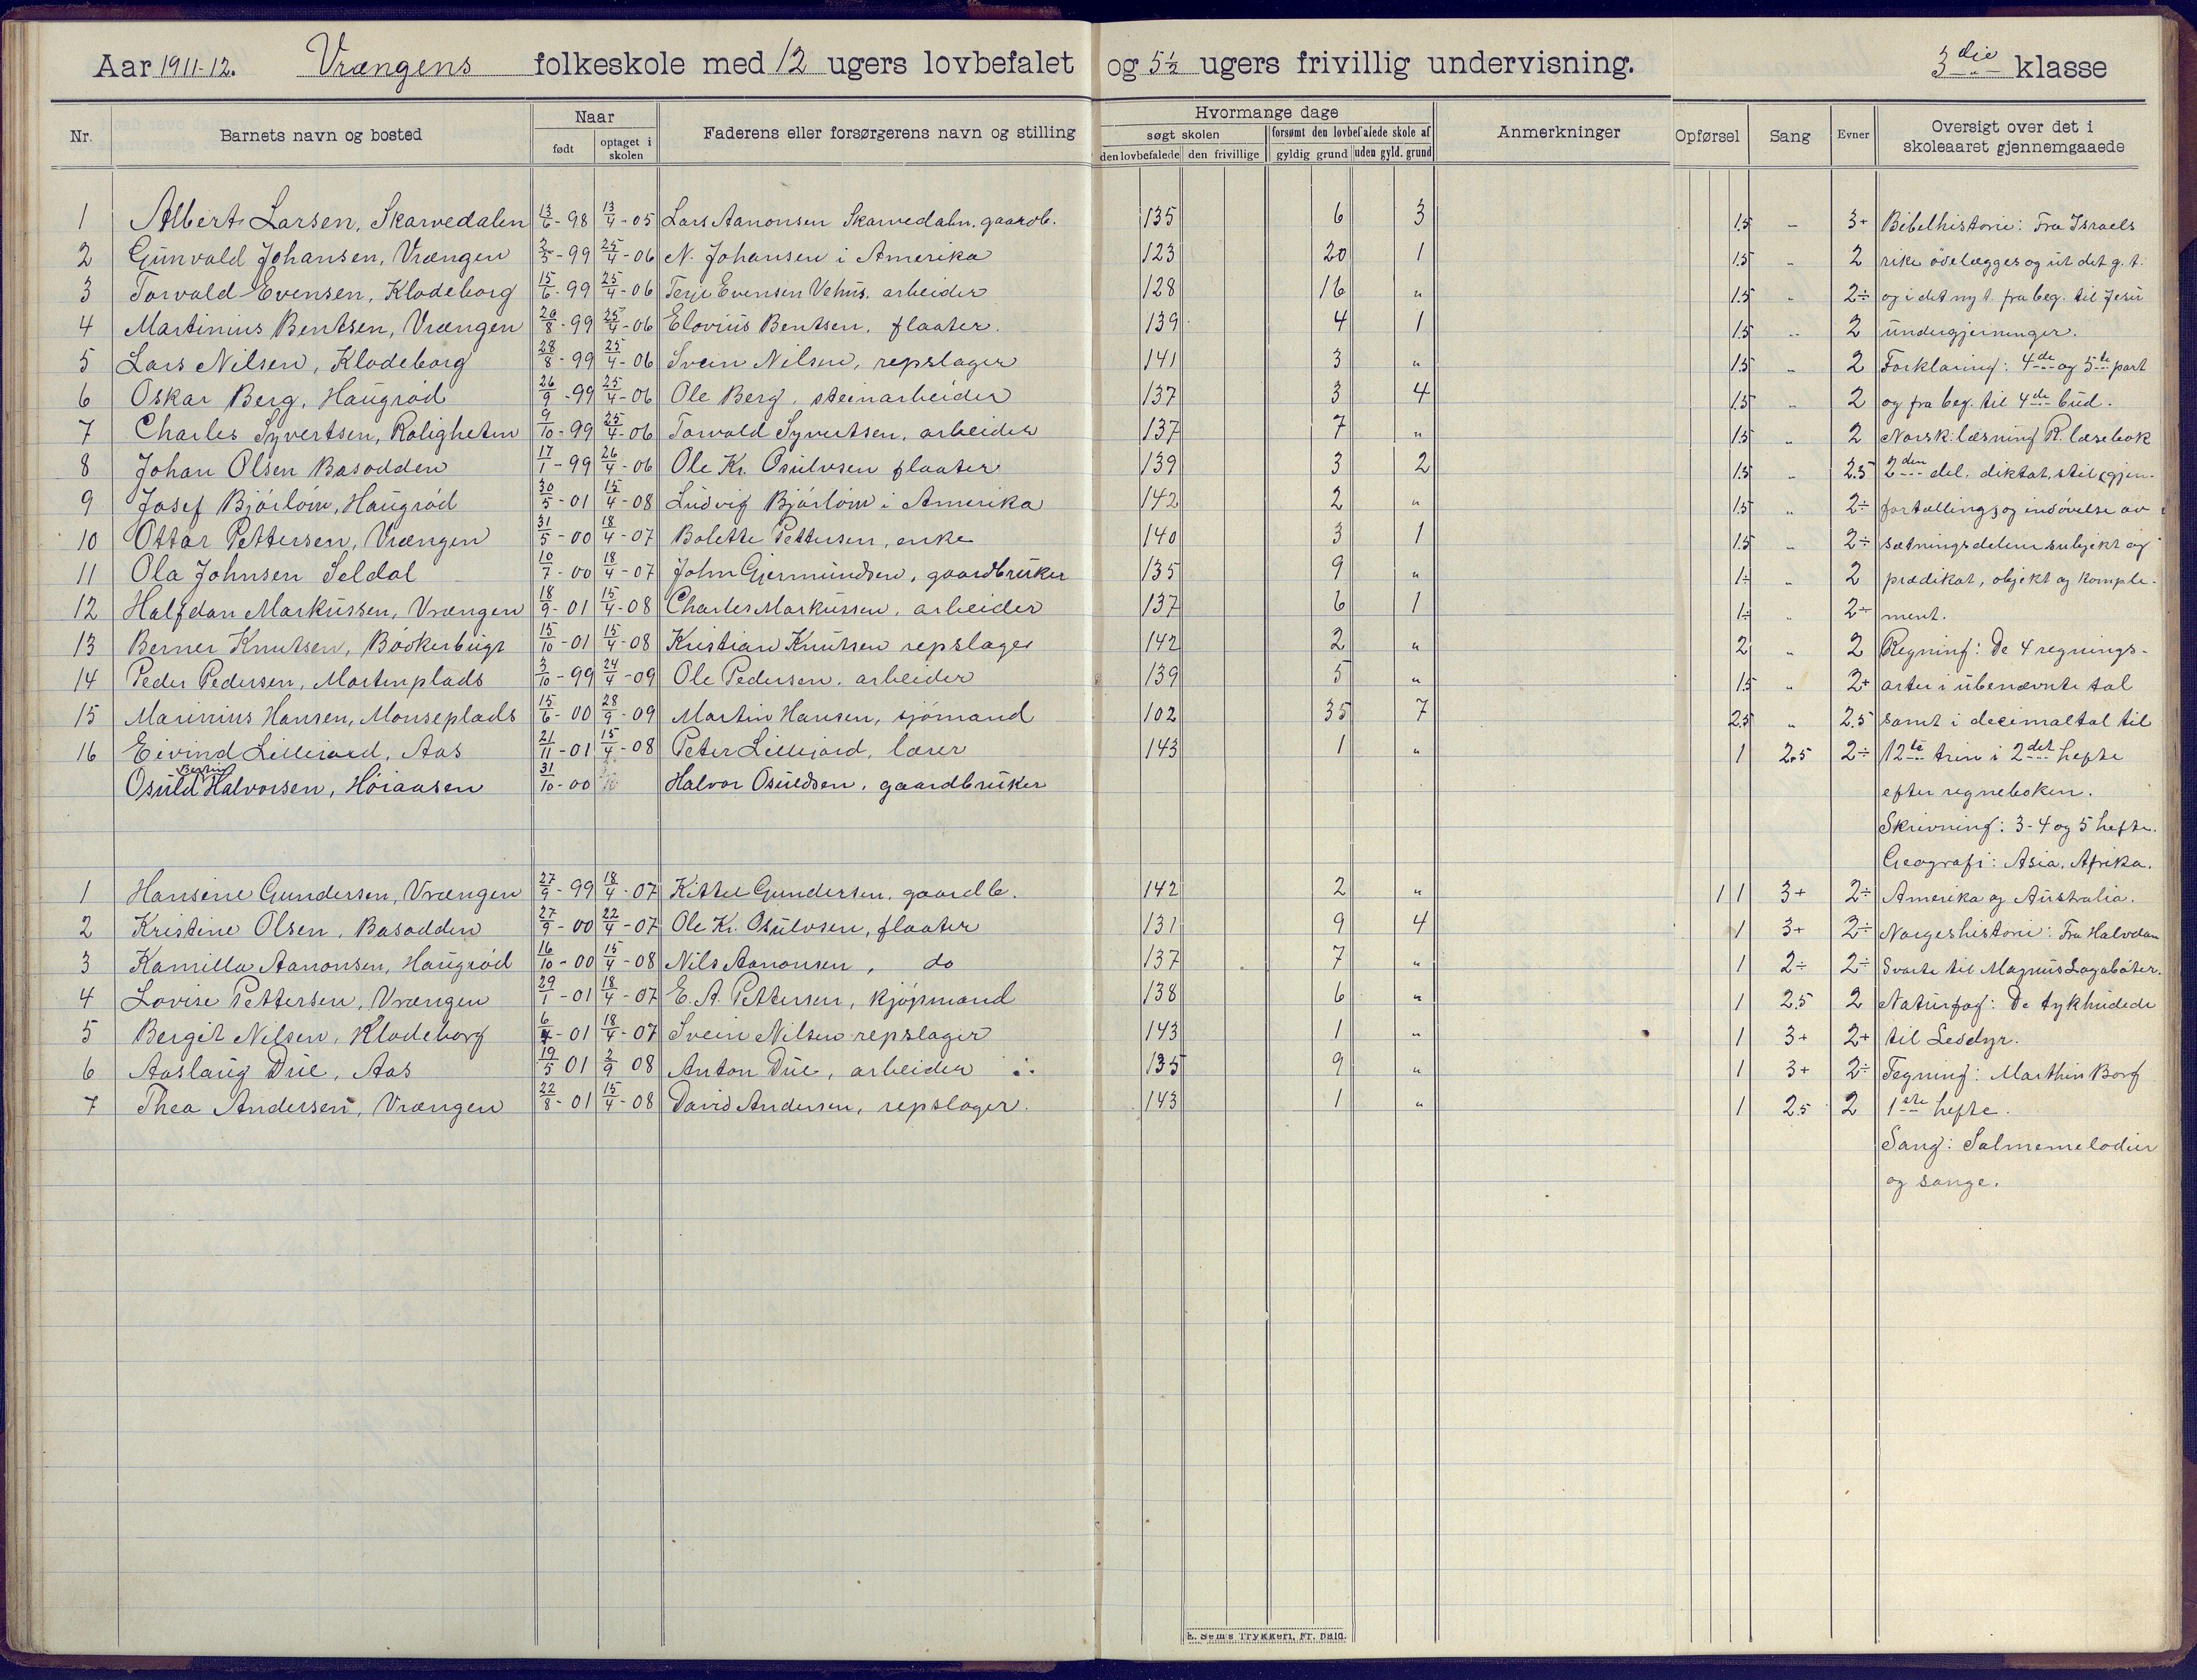 Aar 1911-12. Vrængens folkeskole med 12 ugers lovbefalet og 5½ ugers frivillig undervisning. 3die klasse
Nr. Barnets navn og bosted Naar født optaget i skolen Faderens eller forsørgerens navn og stilling Hvormange dage søgt skolen den lovbefalede den frivillige forsømt den lovbefalede skole af gyldig grund uden gyld. grund Anmerkninger Opførsel Sang Evner Oversigt over det i skoleaaret gjennemgaaede
1 Albert Larsen, Skarvedalen 13/6-98 13/4-05 Lars Aanonsen Skarvedaln, gaardb. 135 6 3 1.5 „ 3+ Bibelhistorie: Fra Israels
2 Gunvald Johansen, Vrængen 2/5-99 25/4-06 N. Johansen i Amerika 123 20 1 1.5 „ 2 rike ødelægges og ut det g. t.
3 Torvald Evensen, Klodeborg 15/6-99 25/4-06 Terje Evensen Vehus, arbeider 128 16 „ 1.5 „ 2÷ og i det ny t. fra beg. til Jesu
4 Martinius Bentsen, Vrængen 20/8-99 25/4-06 Elovius Bentsen, fløater. 139 4 1 1.5 „ 2 undergjerninger.
5 Lars Nilsen, Klodeborg 28/8-99 25/4-06 Svein Nilsen, repslager 141 3 „ 1.5 „ 2 Forklaring: 4de og 5te part
6 Oskar Berg, Haugrød 26/9-99 25/4-06 Ole Berg, steinarbeider 137 3 4 1.5 „ 2 og fra beg. til 4de bud.
7 Charles Syvertsen, Roligheten 9/10-99 25/4-06 Torvald Syvertsen, arbeider 137 7 „ 1.5 „ 2 Norsk: læsning R. læsebok
8 Johan Olsen Basodden 17/1-99 26/4-06 Ole Kr. Osulvsen fløater 139 3 2 1.5 „ 2.5 2den del, diktat, stil, gjen-
9 Josef Bjørløw, Haugrød 30/5-01 15/4-08 Ludvig Bjørløw i Amerika 142 2 „ 1.5 „ 2÷ fortælling, og indøvelse av
10 Ottar Pettersen, Vrængen 31/5-00 18/4-07 Bolette Pettersen, enke 140 3 1 1.5 „ 2÷ sætningsdelene subjekt og
11 Ola Johnsen Seldal 10/7-00 18/4-07 John Gjermundsen, gaardbruker 135 9 „ 1÷ „ 2 prædikat, objekt og komple-
12 Halfdan Markussen, Vrængen 18/9-01 15/4-08 Charles Markussen, arbeider 137 6 1 1÷ „ 2÷ ment.
13 Berner Knutsen, Bookerbugt 15/10-01 15/4-08 Kristian Knutsen repslager 142 2 „ 2 „ 2 Regning: De 4 regnings-
14 Peder Pedersen, Mortenplads 3/10-99 24/4-09 Ole Pedersen, arbeider 139 5 „ 1.5 „ 2+ arter i ubenævnte tal
15 Marinius Hansen, Monseplads 15/6-00 28/9-09 Martin Hansen, sjømand 102 35 7 2.5 „ 2.5 samt i decimaltal til
16 Eivind Lillejord, Aas 21/11-01 15/4-08 Peter Lillejord, lærer 143 1 „ 1 2.5 2÷ 12te trin i 2det hefte
Osuld Halvorsen, Høiaasen 31/10-00 Halvor Osuldsen, gaardbruker efter regneboken.
Skrivning: 3-4 og 5 hefte.
Geografi: Asia, Afrika.
1 Hansine Gundersen, Vrængen 27/9-99 18/4-07 Kittel Gundersen, gaardb. 142 2 „ 1 1 3+ 2÷ Amerika og Australia.
2 Kristine Olsen, Basodden 27/9-00 22/4-07 Ole Kr. Osulvsen, fløater 131 9 4 1 3+ 2÷ Norgeshistorie: Fra Halvdan
3 Kamilla Aanonsen, Haugrød 16/10-00 15/4-08 Nils Aanonsen, do 137 7 „ 1 2÷ 2÷ Svarte til Magnus Lagabøter.
4 Lovise Pettersen, Vrængen 29/1-01 18/4-07 E. A. Pettersen, kjøpmand 138 6 „ 1 2.5 2 Naturfag: De tykhudede
5 Bergit Nilsen, Klodeborg 6/4-01 18/4-07 Svein Nilsen repslager 143 1 „ 1 3+ 2+ til Ledyr.
6 Aaslaug Due, Aas 19/5 01 2/9 08 Anton Due, arbeider 135 9 „ 1 3+ 2÷ Tegning: Marthin Borg
7 Thea Andersen, Vrængen 22/8-01 15/4-08 David Andersen, repslager. 143 1 „ 1 2.5 2 1ste hefte.
Sang: Salmemelodier
og sange.
E. Sems Trykkeri, Fr. hald.